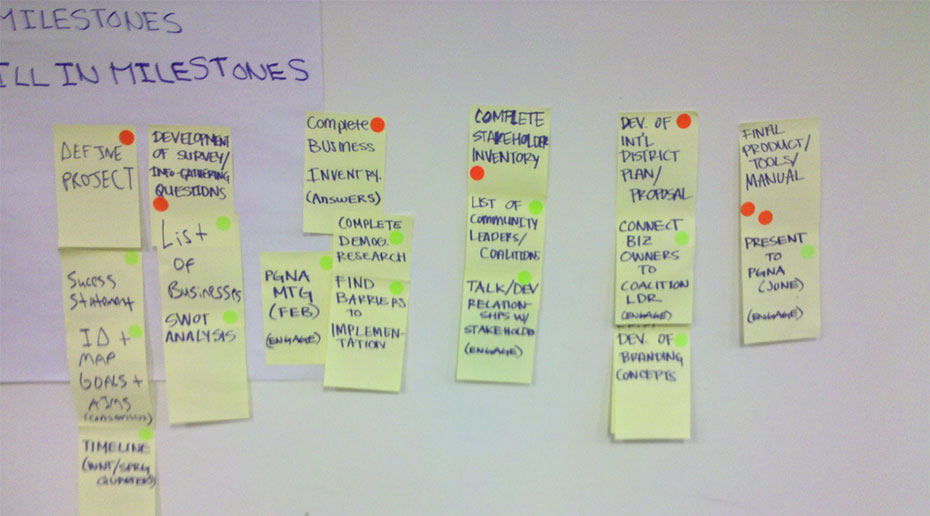 MILESTONES
ILL IN MILESTONES
DEFINE
PROJECT
Sucess
Statement
ID +
MAP
GOALS +
AIMS
(consensus)
TIMELINE
(WNT/SPRG
QUARTERS)
DEVELOPMENT
OF SURVEY/
INFO-GATHERING
QUESTIONS
List
OF
Businesses
SWOT
ANALYSIS
PGNA
MTG
(FEB)
(ENGAGE)
Complete
BUSINESS
INVENTRY.
(ANSWERS)
COMPLETE
DEMOG.
RESEARCH
FIND
BARRIERS
TO
IMPLEMEN-
TATION
COMPLETE
STAKEHOLDER
INVENTORY
LIST OF
COMMUNITY
LEADERS/
COALITIONS
TALK/DEV
RELATION-
SHPS W/
STAKEHOLD
(ENGAGE)
DEV. OF
INT'L
DISTRICT
PLAN/
PROPOSAL
CONNECT
BIZ
OWNERS
TO
COALITION
LDR.
(ENGAGE)
DEV. OF
BRANDING
CONCEPTS
FINAL
PRODUCT/
TOOLS/
MANUAL
PRESENT
TO
PGNA
(JUNE)
(ENGAGE)